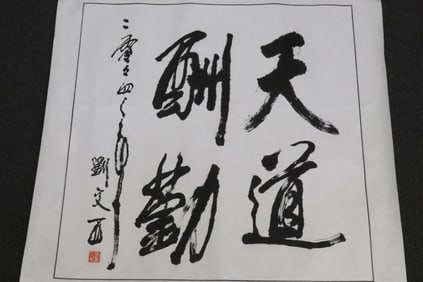 天道
酬勤
二零零四年
劉文西